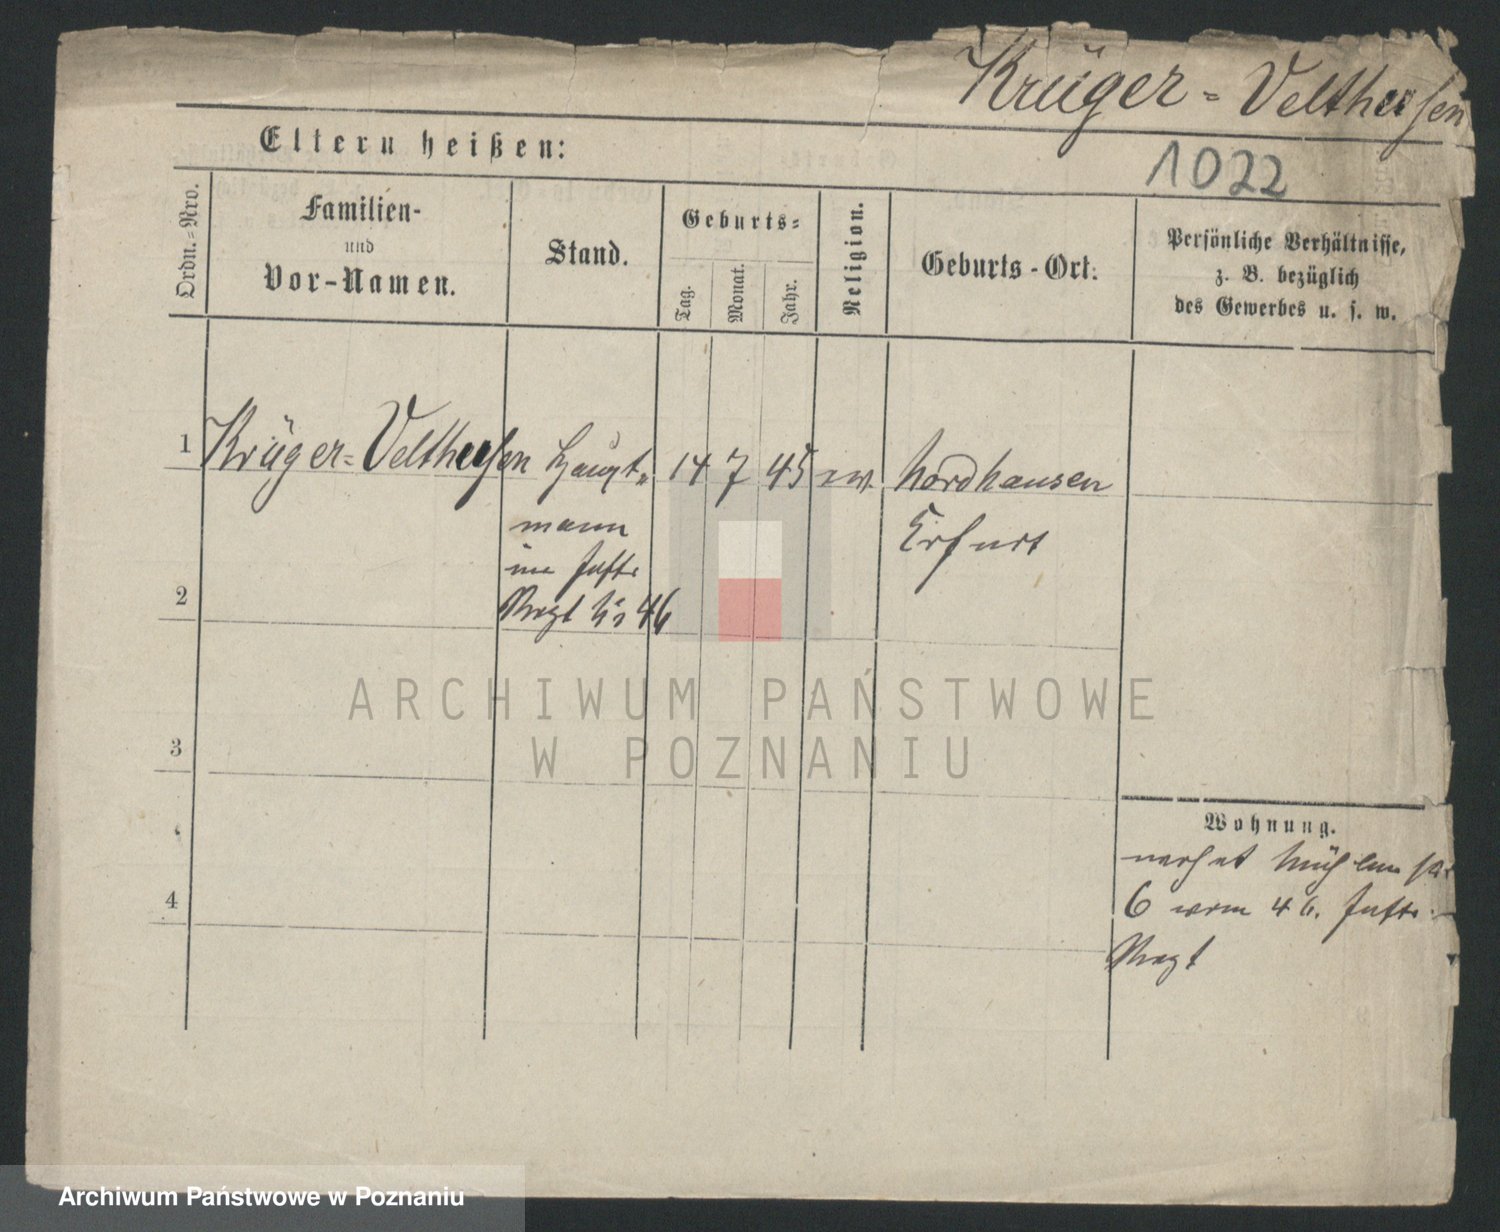 Krüger-Velthusen
1022
Eltern heißen:
Ordn.-Nro.
Familien-
und
Vor-Namen.
Stand.
Geburts-
Tag.
Monat.
Jahr.
Religion.
Geburts-Ort.
Persönliche Verhältnisse,
z. B. bezüglich
des Gewerbes u. s. w.
1 Krüger-Velthusen Haupt- 14 7 45 ev. Nordhausen
mann Erfurt
im Inftr
2 Regt Nr 46
3
4
Wohnung.
Mühlenstr
6 vom 46. Inftr.
Regt
ARCHIWUM PAŃSTWOWE
W POZNANIU
Archiwum Państwowe w Poznaniu